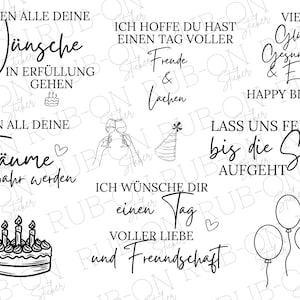 EN ALLE DEINE
Wünsche
IN ERFÜLLUNG
GEHEN
ICH HOFFE DU HAST
EINEN TAG VOLLER
Freude
&
Lachen
VIE
Gl
Gesun
& E
HAPPY BI
N ALL DEINE
Träume
wahr werden
LASS UNS FE
bis die S
AUFGEHT
ICH WÜNSCHE DIR
einen Tag
VOLLER LIEBE
und Freundschaft